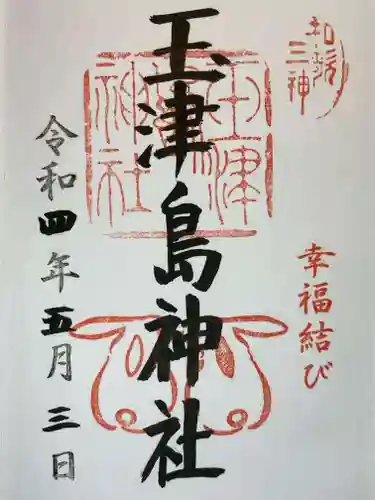 和歌
三神
幸福結び
玉津島神社
玉津島神社
令和四年五月三日